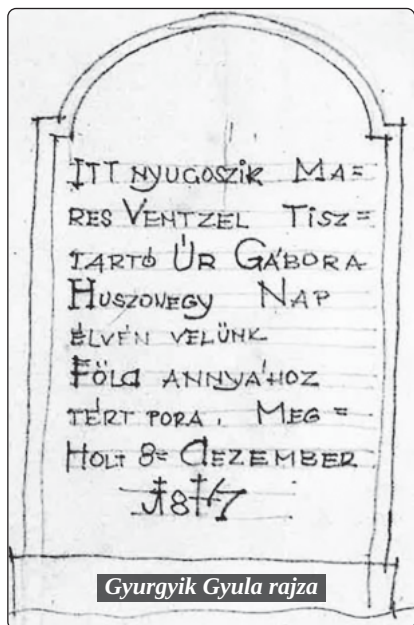 ITT NYUGOSZIK MA=
RES VENTZEL TISZ=
TARTÓ ÚR GÁBORA
HUSZONEGY NAP
ÉLVÉN VELÜNK
FÖLd ANNYÁHOZ
TÉRT PORA. MEG=
HOLT 8= dEZEMBER
1817
Gyurgyik Gyula rajza